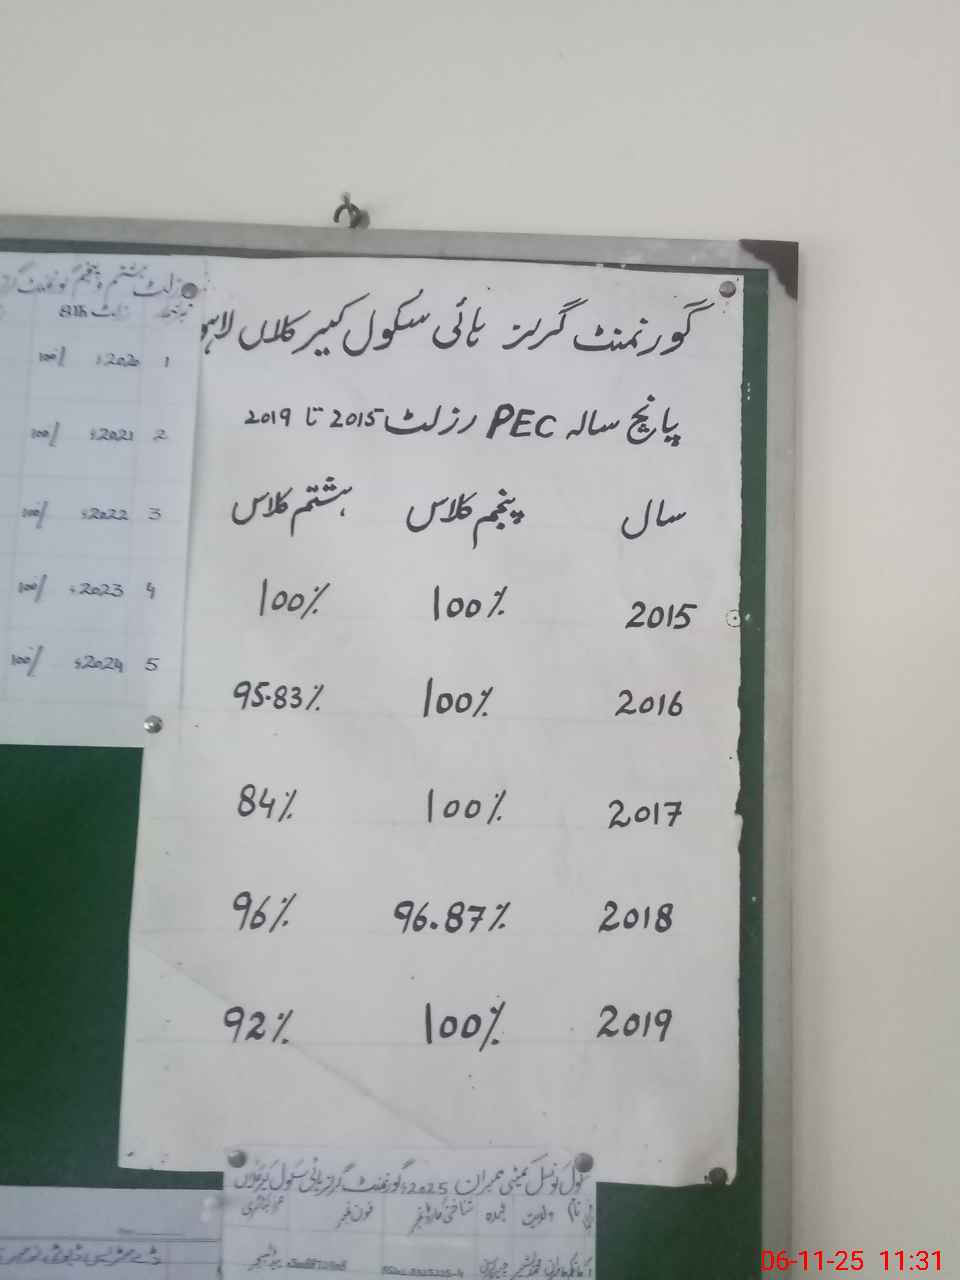 گورنمنٹ گرلز ہائی سکول کیر کلاں لاہو
پانچ سالہ PEC رزلٹ 2015 تا 2019
سال پنجم کلاس ہشتم کلاس
2015 100% 100%
2016 100% 95.83%
2017 100% 84%
2018 96.87% 96%
2019 100% 92%
رزلٹ ہشتم و پنجم گورنمنٹ گرلز
رزلٹ 8th
1 2020ء 100%
2 2021ء 100%
3 2022ء 100%
4 2023ء 100%
5 2024ء 100%
سکول کونسل کمیٹی ممبران 2025ء گورنمنٹ گرلز ہائی سکول کیر کلاں
نام ولدیت عہدہ شناختی کارڈ نمبر فون نمبر
06-11-25 11:31